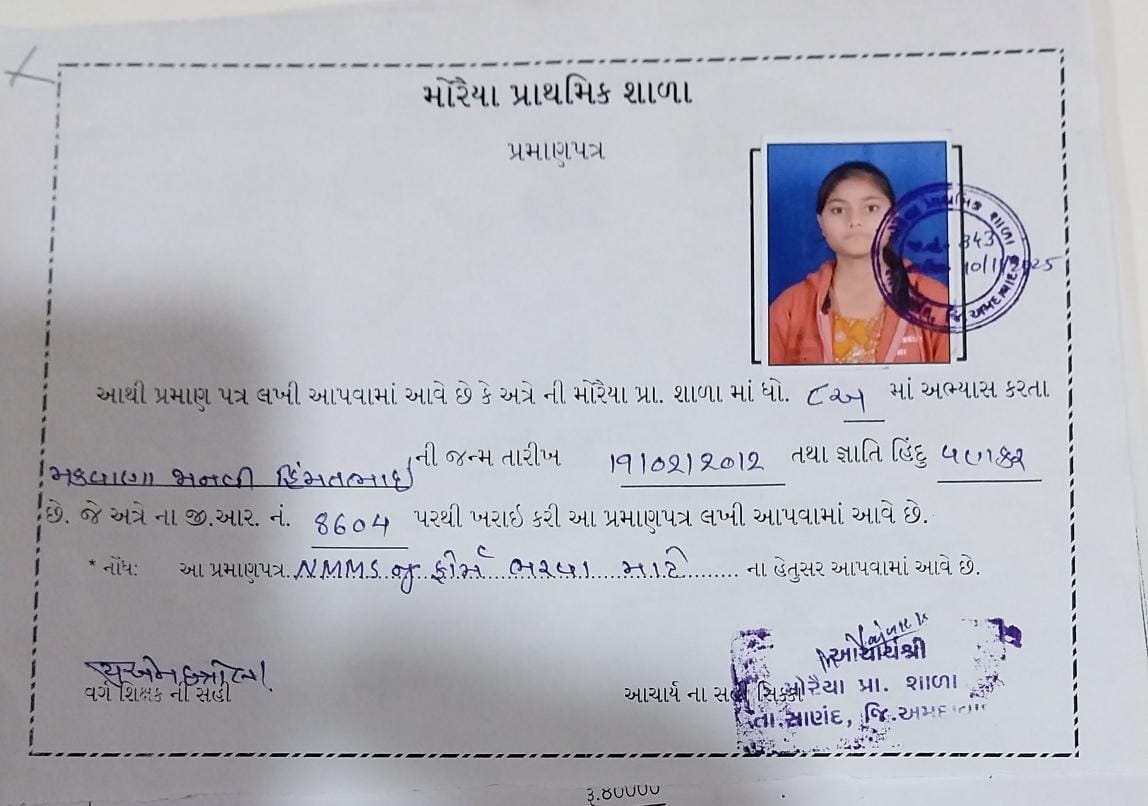 મોરૈયા પ્રાથમિક શાળા
પ્રમાણપત્ર
પ્રાથમિક શાળા
343
10/11/2025
જિ. અમદાવાદ
આથી પ્રમાણ પત્ર લખી આપવામાં આવે છે કે અત્રે ની મોરૈયા પ્રા. શાળા માં ધો. ૮અ માં અભ્યાસ કરતા
મકવાણા હિંમતભાઇ ની જન્મ તારીખ 19/02/2012 તથા જ્ઞાતિ હિંદુ વણકર
છે. જે અત્રે ના જી.આર. નં. 8604 પરથી ખરાઇ કરી આ પ્રમાણપત્ર લખી આપવામાં આવે છે.
* નોંધ: આ પ્રમાણપત્ર NMMS નુ ફોર્મ ભરવા માટે ના હેતુસર આપવામાં આવે છે.
વર્ગ શિક્ષક ની સહી
આચાર્ય ના સહી સિક્કો
આચાર્યશ્રી
મોરૈયા પ્રા. શાળા
તા.સાણંદ, જિ.અમદાવાદ
રૂ.૪૦૦૦૦